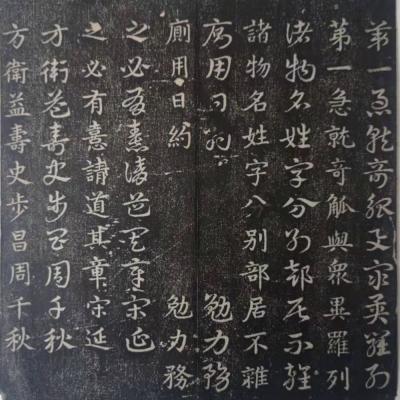 第一急就奇觚與衆異羅列
第一急就奇觚與衆異羅列
諸物名姓字分別部居不雜
諸物名姓字分別部居不雜
廁用日約 勉力務
廁用日約 勉力務
之必有憙請道其章宋延
之必有憙請道其章宋延
方衛益壽史步昌周千秋
方衛益壽史步昌周千秋